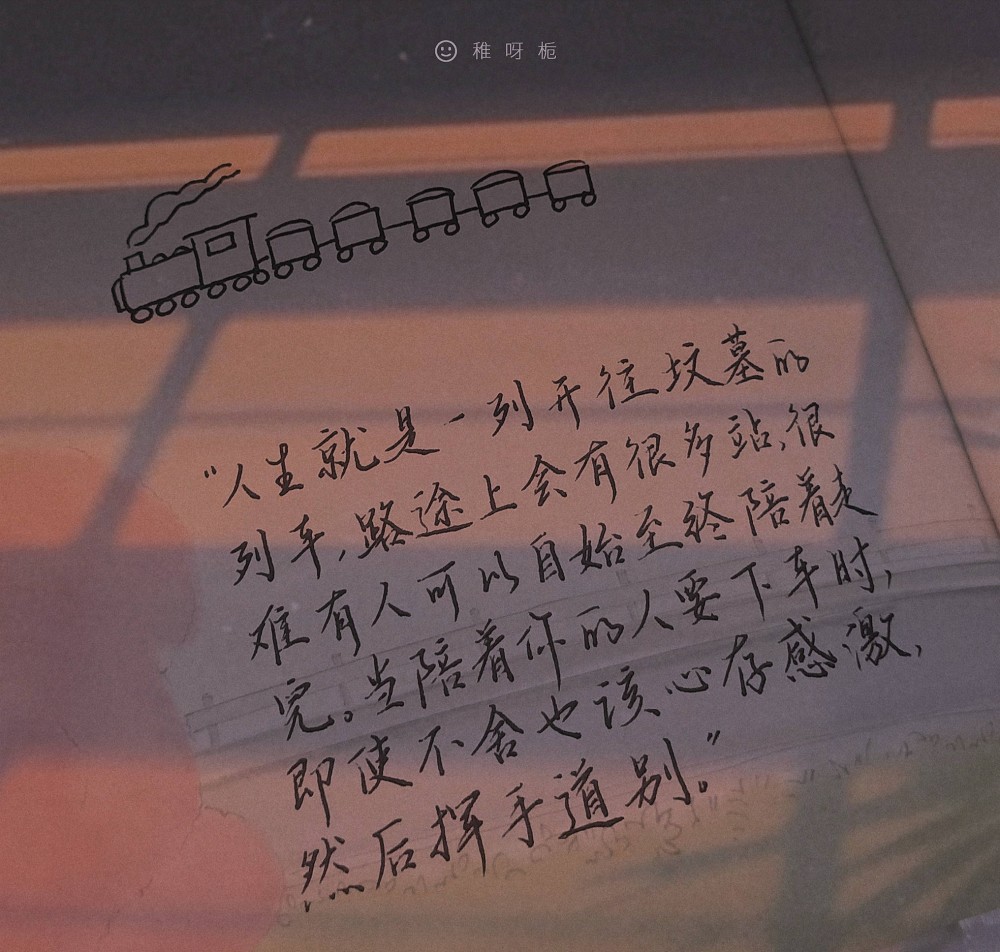 稚呀栀
“人生就是一列开往坟墓的
列车,路途上会有很多站,很
难有人可以自始至终陪着走
完。当陪着你的人要下车时,
即使不舍也该心存感激,
然后挥手道别。”